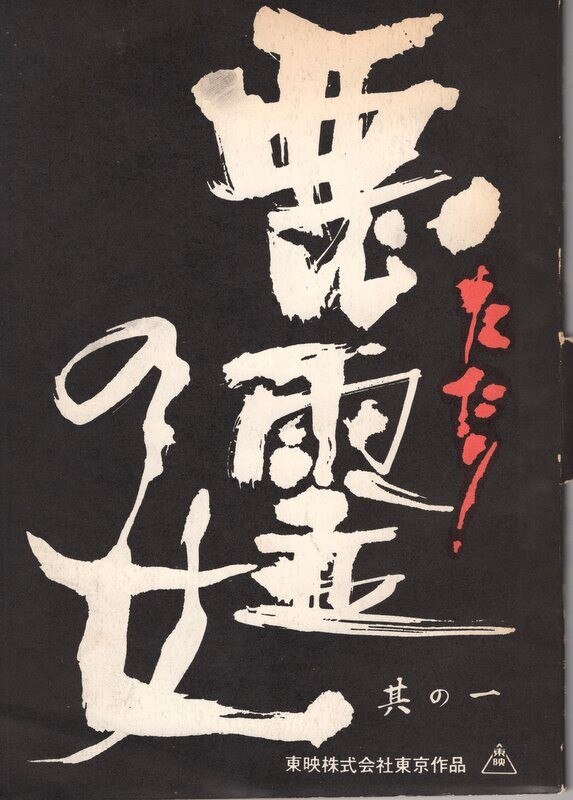 たたり
悪霊
の女
其の一
東映株式会社東京作品
東映